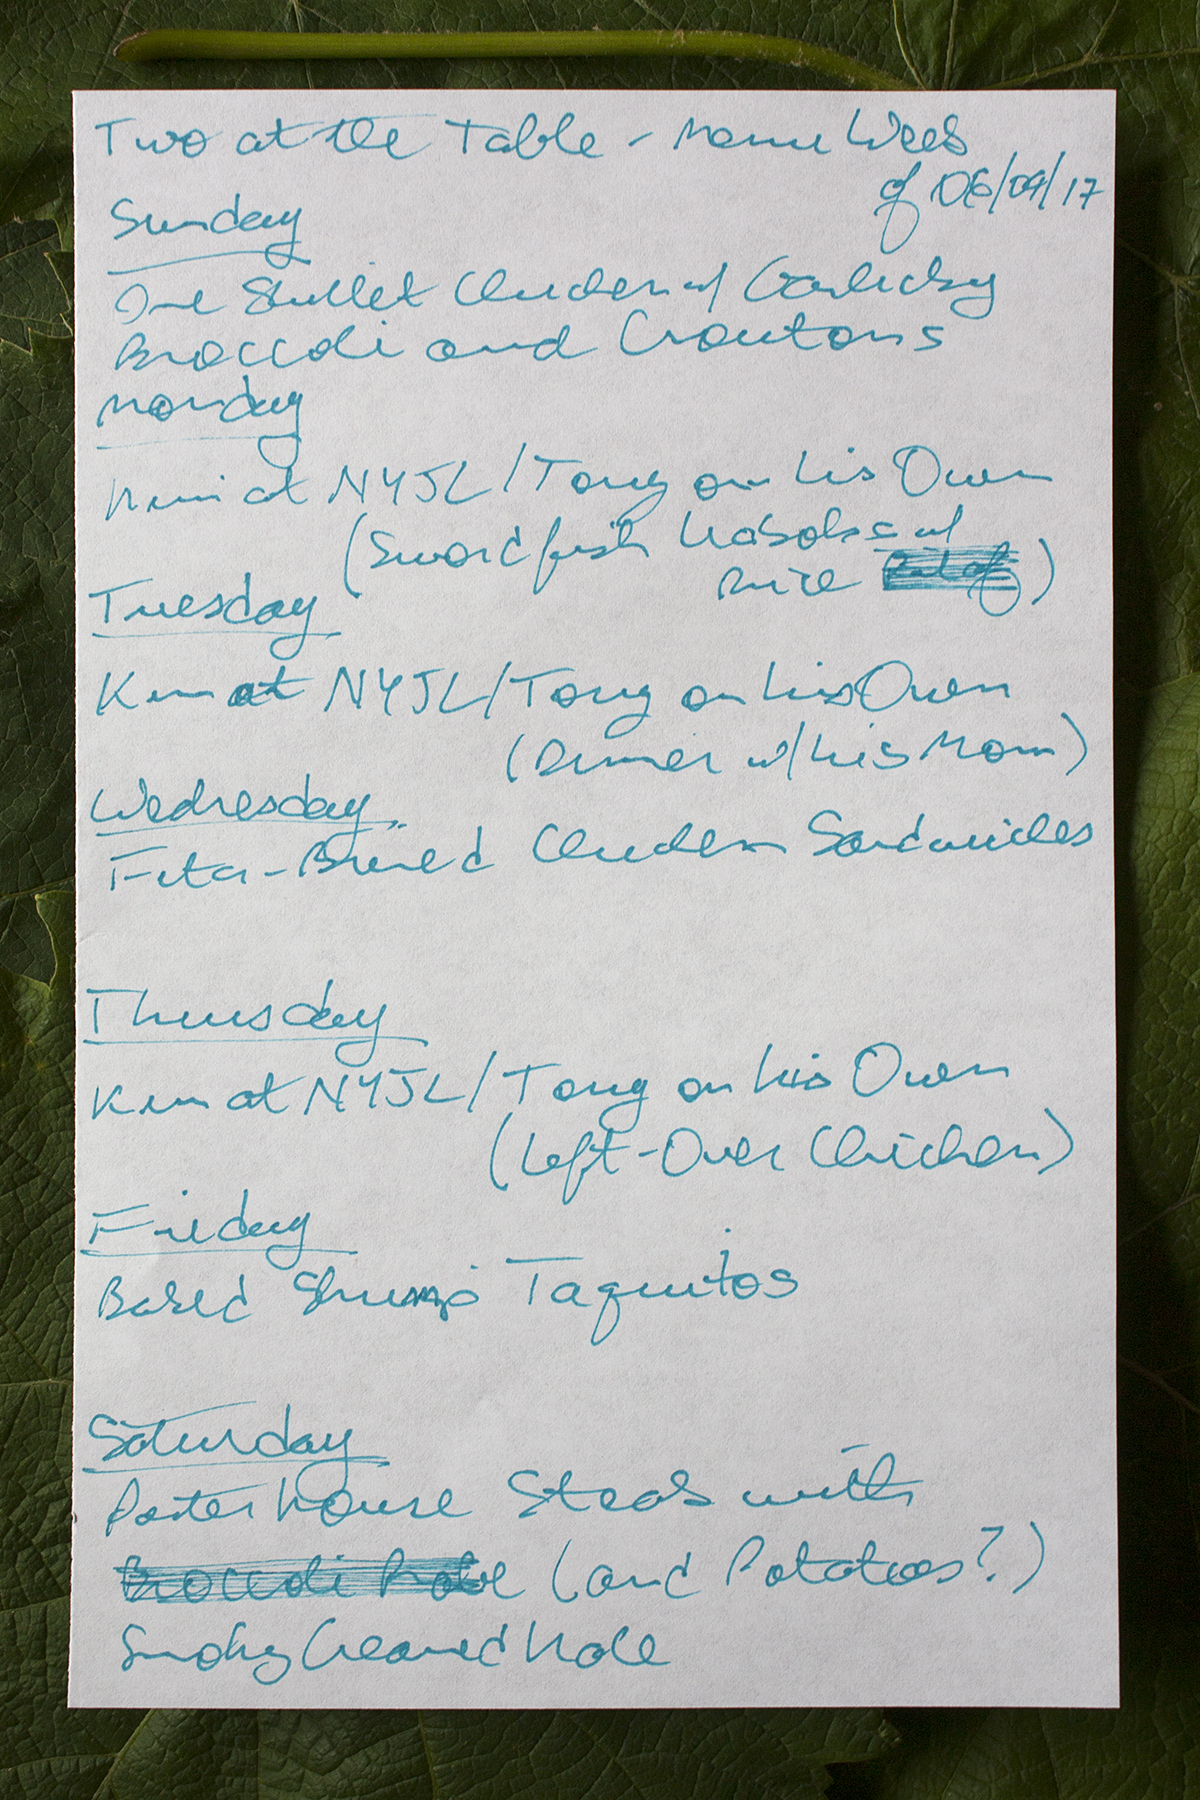 Two at the Table - Menu Week
of 06/09/17
Sunday
One Skillet Chicken w/ Garlicky
Broccoli and Croutons
Monday
Kim at NYJL/Tong on his Own
(Swordfish Kabobs w/
rice Pilaf)
Tuesday
Kim at NYJL/Tong on his Own
(Dinner w/ his Mom)
Wednesday
Feta-Brined Chicken Sandwiches
Thursday
Kim at NYJL/Tong on his Own
(Left-Over Chicken)
Friday
Baked Shrimp Taquitos
Saturday
Porterhouse Steak with
Broccoli Rabe (and Potatoes?)
Smoky Creamed Kale